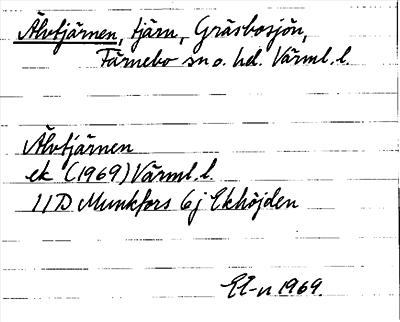 Älvtjärnen, tjärn, Gräsbosjön,
Färnebo sn o. hd. Värml. l.
Älvtjärnen
ek (1969) Värml. l.
11D Munkfors 6j Ekhöjden
1969.